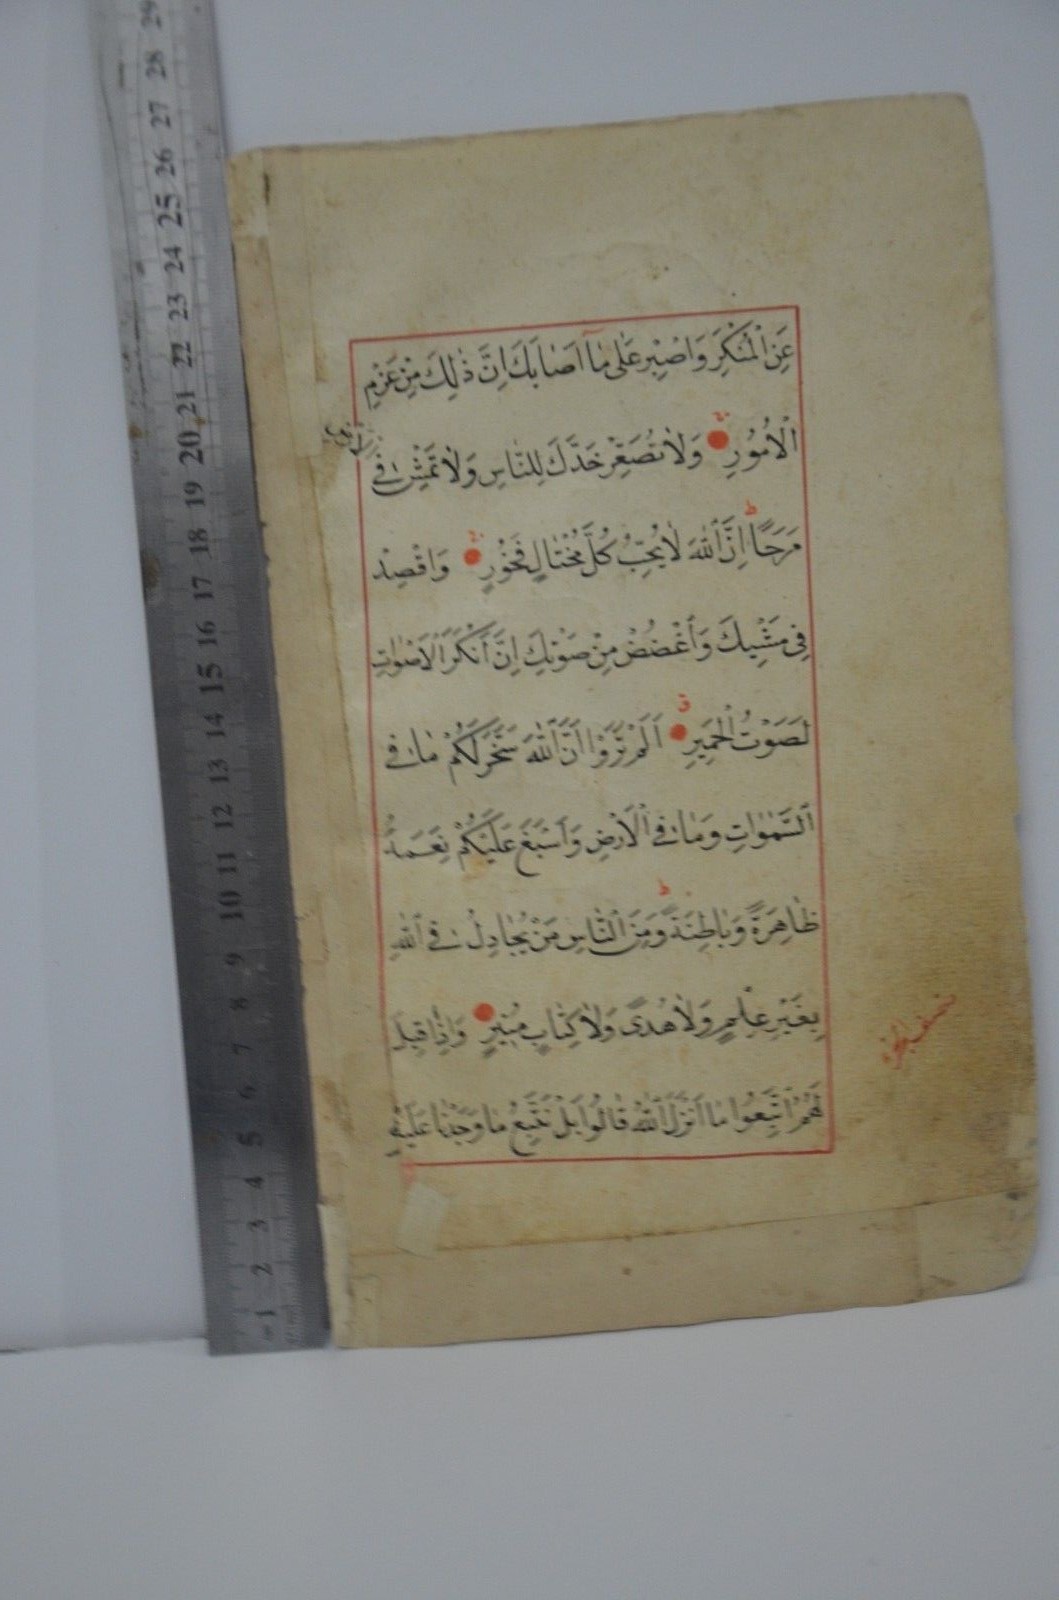 عَنِ الْمُنْكَرِ وَاصْبِرْ عَلٰى مَٓا اَصَابَكَ اِنَّ ذٰلِكَ مِنْ عَزْمِ
الْاُمُورِ وَلَا تُصَعِّرْ خَدَّكَ لِلنَّاسِ وَلَا تَمْشِ فِي
الارض
مَرَحًا ط اِنَّ اللّٰهَ لَا يُحِبُّ كُلَّ مُخْتَالٍ فَخُورٍ وَاقْصِدْ
فِي مَشْيِكَ وَاغْضُضْ مِنْ صَوْتِكَ اِنَّ أَنْكَرَ الْاَصْوَاتِ
لَصَوْتُ الْحَمِيرِ اَلَمْ تَرَوْا اَنَّ اللّٰهَ سَخَّرَ لَكُمْ مَا فِي
السَّمٰوَاتِ وَمَا فِي الْاَرْضِ وَاَسْبَغَ عَلَيْكُمْ نِعَمَهُ
ظَاهِرَةً وَبَاطِنَةً ط وَمِنَ النَّاسِ مَنْ يُجَادِلُ فِي اللّٰهِ
بِغَيْرِ عِلْمٍ وَلَا هُدًى وَلَا كِتَابٍ مُنِيرٍ وَاِذَا قِيلَ
لَهُمُ اتَّبِعُوا مَا اَنْزَلَ اللّٰهُ قَالُوا بَلْ نَتَّبِعُ مَا وَجَدْنَا عَلَيْهِ
29
28
27
26
25
24
23
22
21
20
19
18
17
16
15
14
13
12
11
10
9
8
7
6
5
4
3
2
1